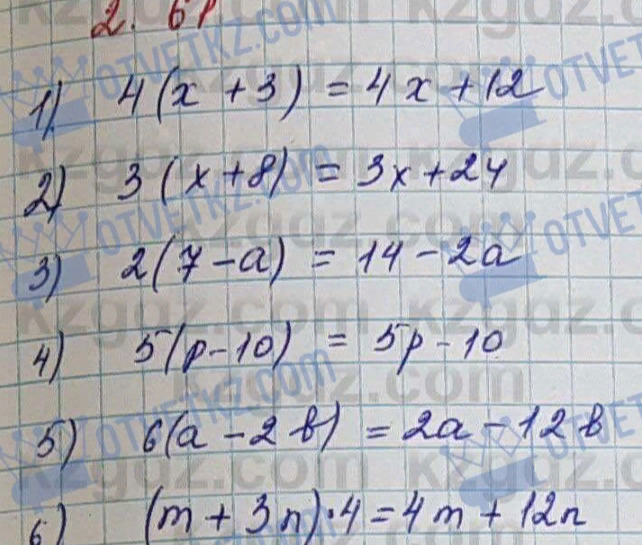 2. БР
1) 4(x + 3) = 4x + 12
2) 3(x + 8) = 3x + 24
3) 2(7 - a) = 14 - 2a
4) 5(p - 10) = 5p - 10
5) 6(a - 2b) = 2a - 12b
6) (m + 3n)·4 = 4m + 12n
OTVETKZ.COM
kzgdz.com